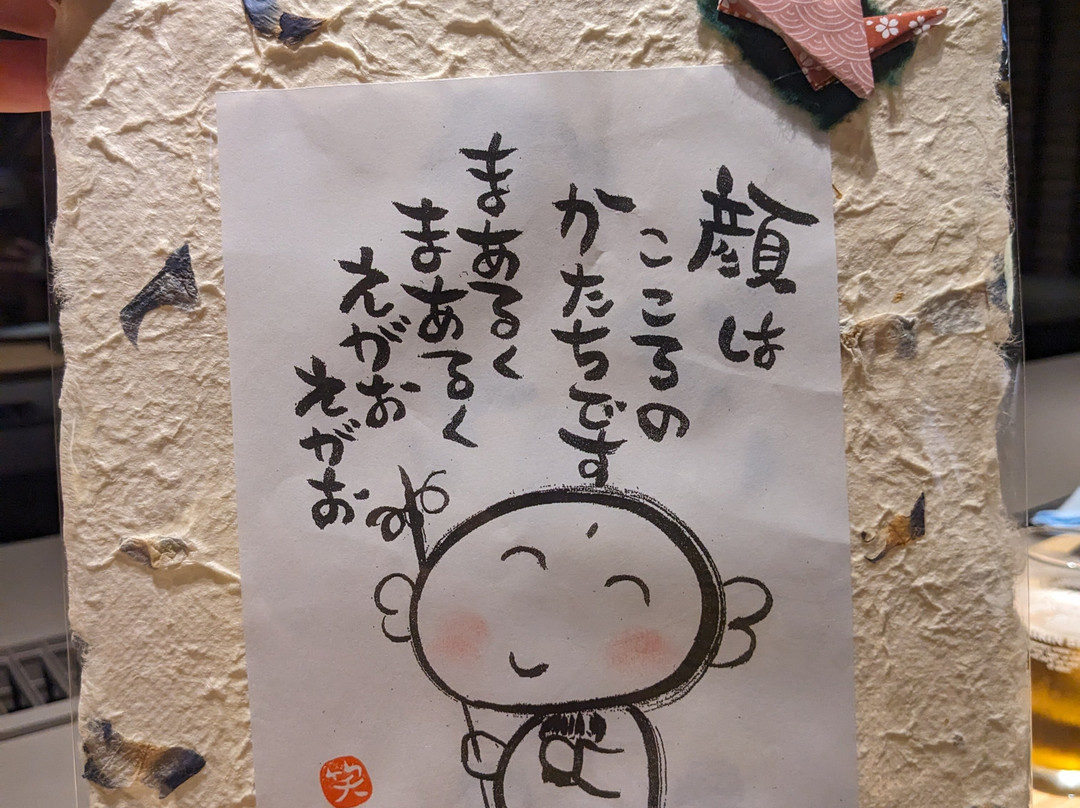 顔は
こころの
かたちです
まあるく
まあるく
えがお
えがお
笑